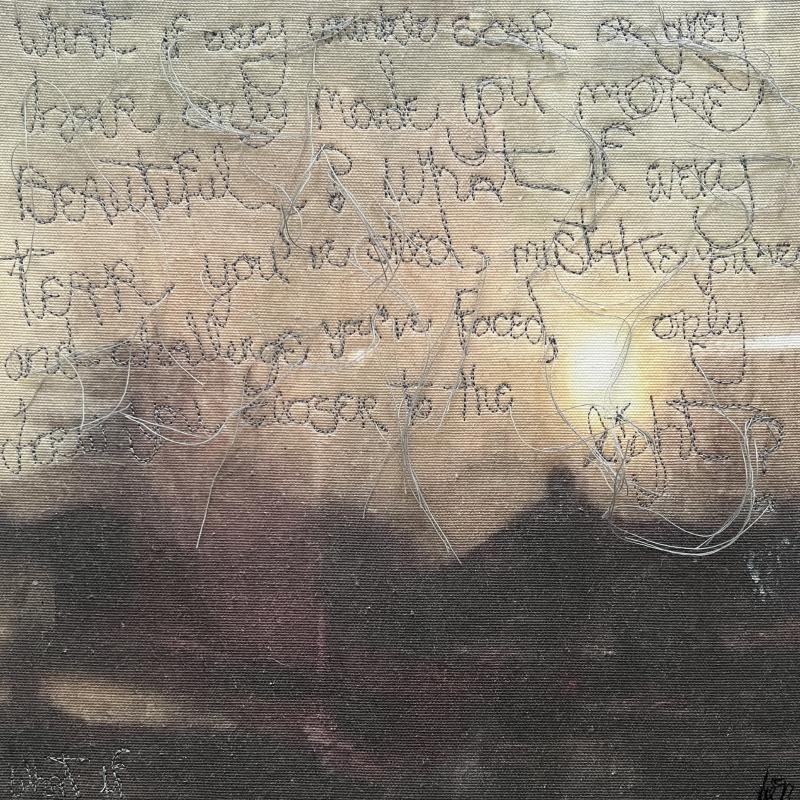 What if every wrinkle scar or grey
have only made you more
Beautiful? What if every
tear you've shed, mistake you've
and challenge you've faced, only
drew you closer to the light?
what if